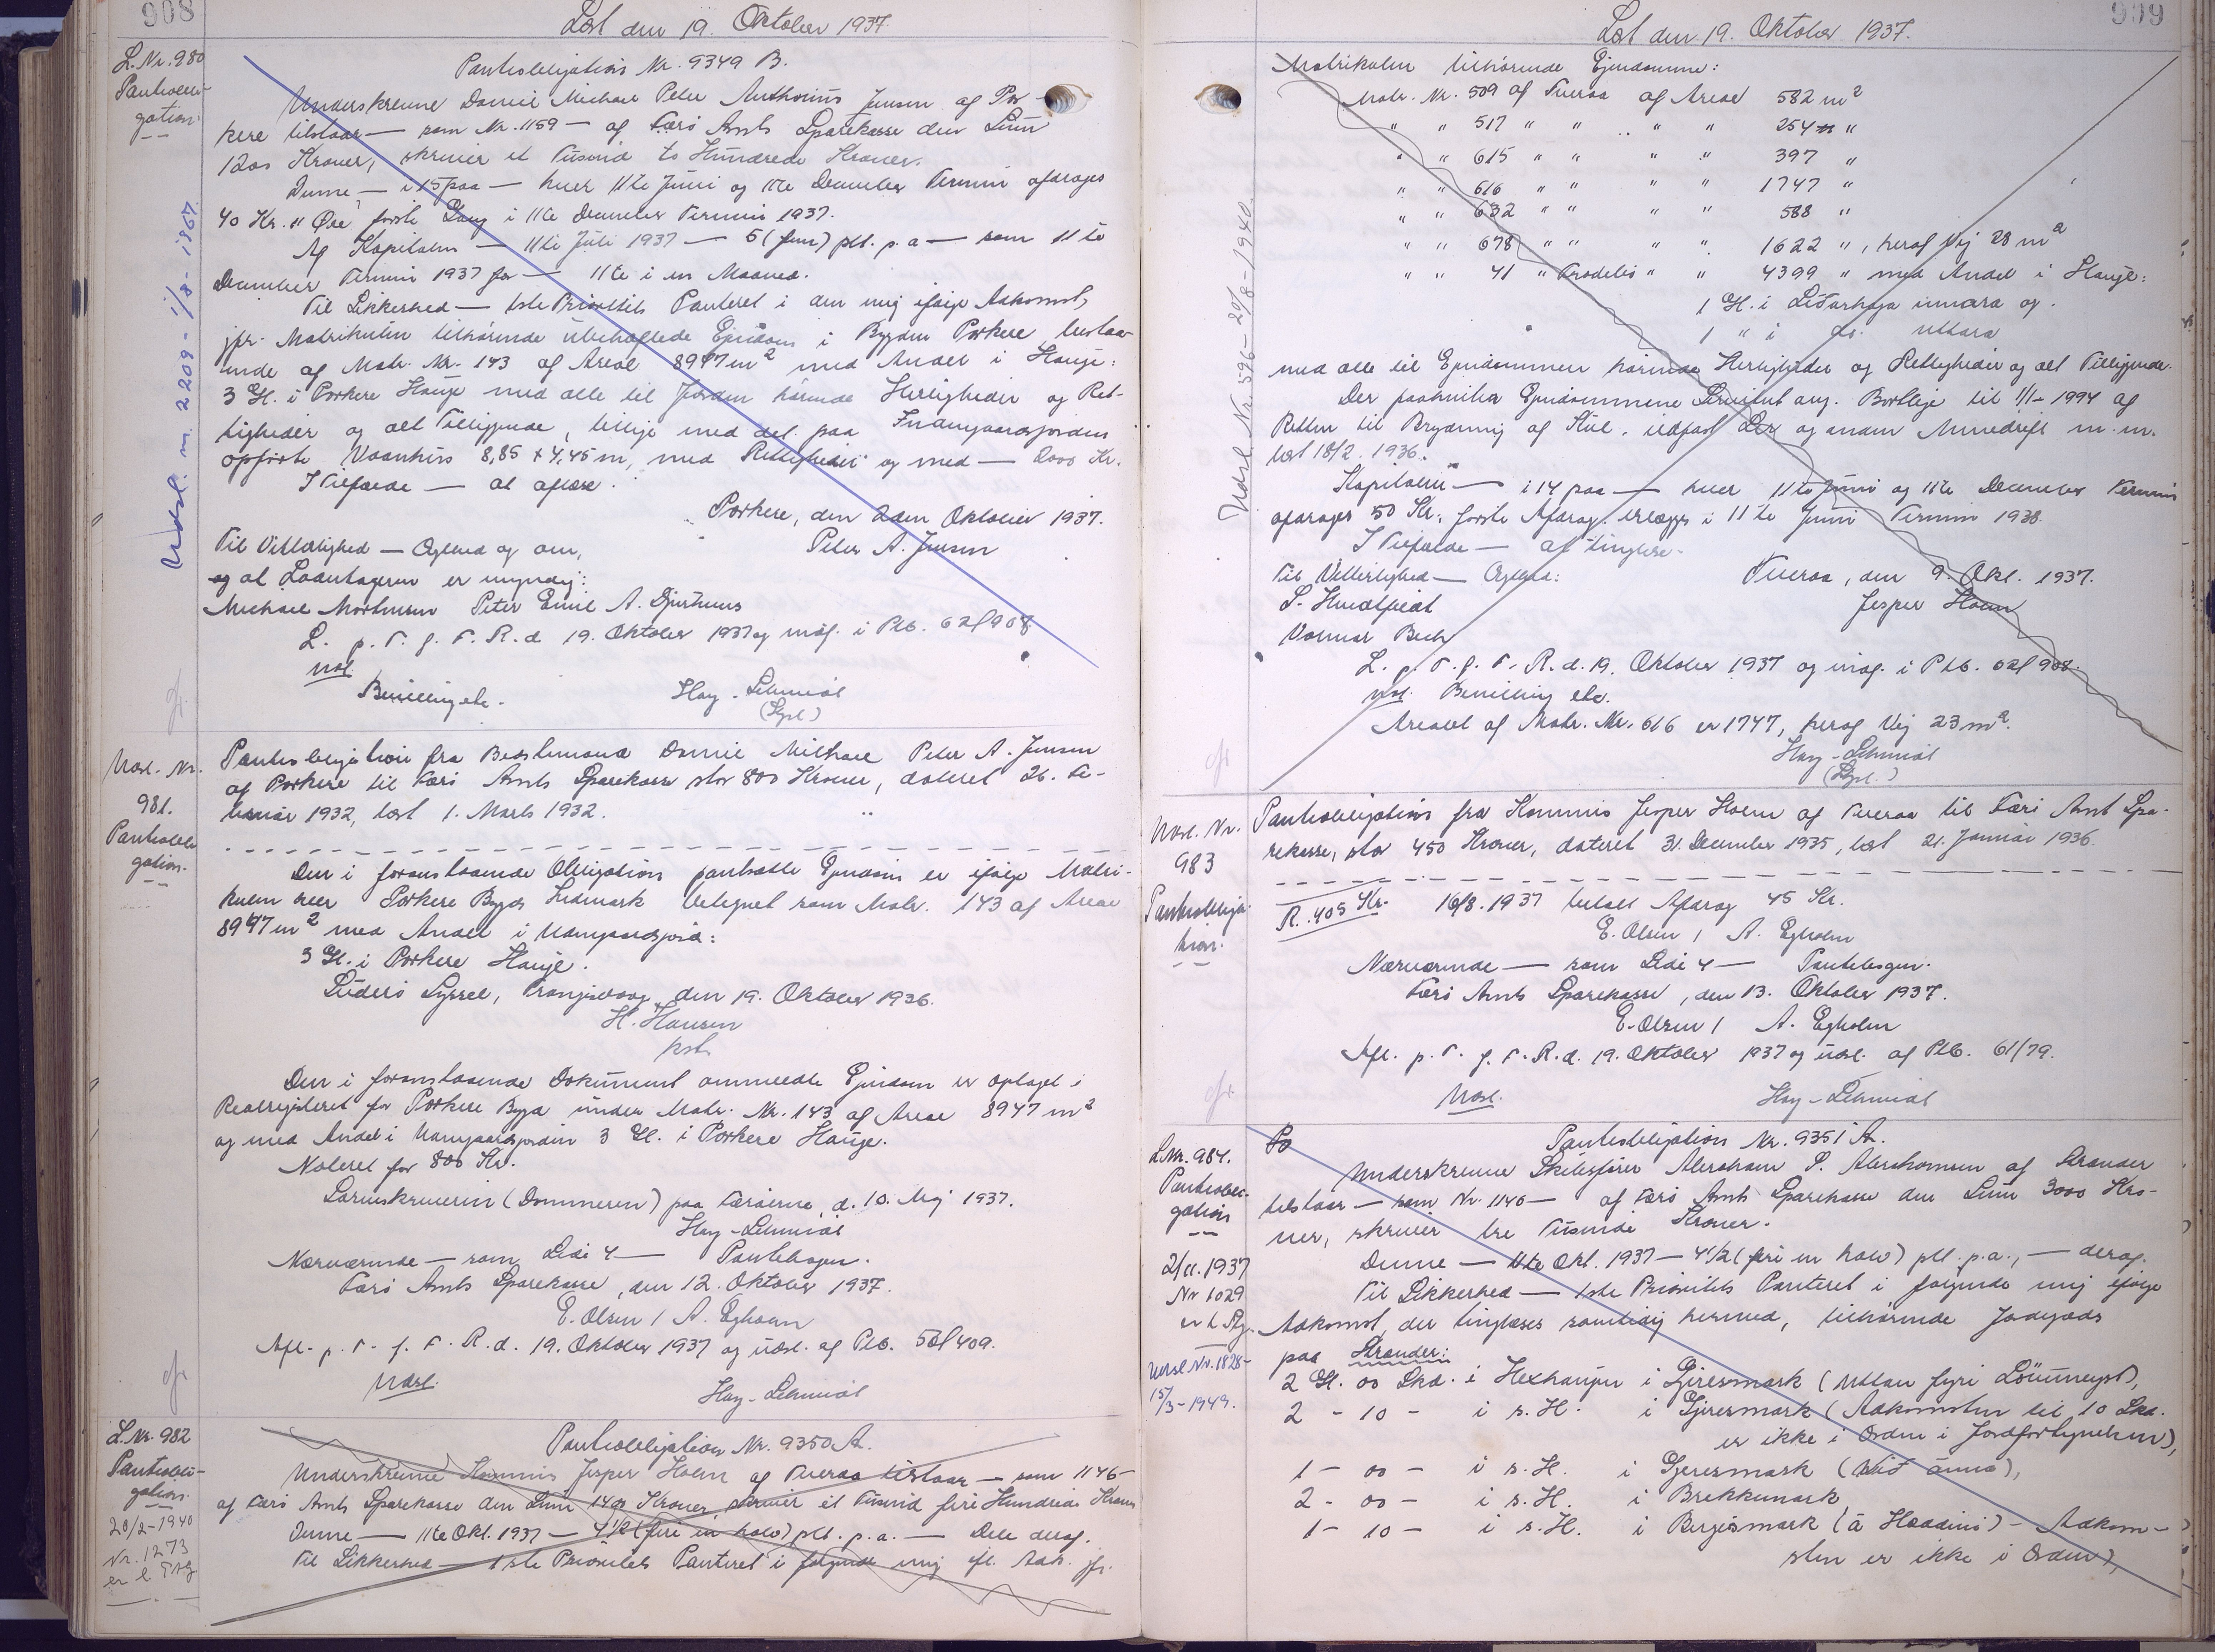 908
Læst den 19. Oktober 1937.
L. Nr. 980
Pantobli-
gation.
Pantobligation Nr. 9349 B.
Underskrevne Daniel Michael Peter Anthonius Jensen af Por-
kere tilstaar — som Nr. 1159 — af Færø Amts Sparekasse den Sum
1200 Kroner, skriver et Tusind to Hundrede Kroner.
Denne — i 15 paa — hver 11te Juni og 11te December Termin afdrages
40 Kr. " Øre første Gang i 11te December Termin 1937.
Af Kapitalen — 11te Juli 1937 — 5 (fem) pCt. p.a — som 11te
December Termin 1937 for — 11te i en Maaned.
Til Sikkerhed — 1ste Prioritets Panteret i den mig ifølge Adkomst,
jfr. Matrikulen tilhørende ubehæftede Ejendom i Bygden Porkere bestaa-
ende af Matr. Nr. 143 af Areal 8947 m² med Andel i Hauge:
3 Gl. i Porkere Hauge med alle til Jorden hørende Herligheder og Ret-
tigheder og alt Tilliggende, tillige med det paa Indmarksjorden
opførte Vaanhus 8,85 x 4,45 m, med Rettigheder og med — 2000 Kr.
I Tilfælde — at aflæse.
Porkere, den 2den Oktober 1937.
Til Vitterlighed — Ægthed og om,
Peter A. Jensen
og at Laantageren er myndig:
Michael Mortensen Peter Emil A. Djurhuus
L. p. T. f. F. R. d. 19. Oktober 1937 og indf. i Ptb. 62 f 908
Udsl.
Bevilling etc.
Hay-Schmidt
(Spl.)
Udsl. m. 2209 - 1/8 - 1867.
Udsl. Nr.
981.
Pantobli-
gation.
Pantobligation fra Bestmand Daniel Michael Peter A. Jensen
af Porkere til Færø Amts Sparekasse stor 800 Kroner, dateret 26. Fe-
bruar 1932, læst 1. Marts 1932.
Den i foranstaaende Obligation pantsatte Ejendom er ifølge Matri-
kulen over Porkere Bygds Indmark betegnet som Matr. 143 af Areal
8947 m² med Andel i Udmarksjord:
3 Gl. i Porkere Hauge.
Suderø Syssel, Trangisvaag, den 19. Oktober 1936.
H. Hansen
kst.
Den i foranstaaende Dokument ommeldte Ejendom er optaget i
Realregisteret for Porkere Bygd under Matr. Nr. 143 af Areal 8947 m²
og med Andel i Udmarksjorden 3 Gl. i Porkere Hauge.
Noteret for 800 Kr.
Sorenskriveren (Dommeren) paa Færøerne, d. 10. Maj 1937.
Hay-Schmidt
Nærværende — som Side 4 — Pantebogen.
Færø Amts Sparekasse, den 12. Oktober 1937.
E. Olsen / A. Egholm
Afl. p. T. f. F. R. d. 19. Oktober 1937 og udsl. af Ptb. 58 f 409.
Udsl.
Hay-Schmidt
L. Nr. 982
Pantobli-
gation.
20/2-1940
Nr. 1273
er l.
Pantobligation Nr. 9350 A.
Underskrevne Kommis Jesper Holm af Tveraa tilstaar — som 1146 —
af Færø Amts Sparekasse den Sum 1400 Kroner, skriver et Tusind fire Hundrede Kroner
Denne — 11te Okt. 1937 — 4½ (fire en halv) pCt. p.a. — Dele deraf.
Til Sikkerhed — 1ste Prioritets Panteret i følgende mig ifl. Adk. jfr.
909
Læst den 19. Oktober 1937.
Matrikulen tilhørende Ejendomme:
Matr. Nr. 509 af Tveraa af Areal 582 m²
" " 517 " " " " 254 "
" " 615 " " " " 397 "
" " 616 " " " " 1747 "
" " 632 " " " " 588 "
" " 678 " " " " 1622 ", heraf Vej 28 m²
" " 41 " Frodebø " " 4399 " med Andel i Hauge:
1 Gl. i Lidarhaga innara og
1 " i do. uttara
med alle til Ejendommen hørende Herligheder og Rettigheder og alt Tilliggende.
Der paahviler Ejendommene Servitut ang. Bortleje til 1/1-1994 af
Retten til Brydning af Kul, ildfast Ler og anden Minedrift m.m.
læst 18/2. 1936.
Kapitalen — i 14 paa — hver 11te Juni og 11te December Termin
afdrages 50 Kr., første Afdrag erlægges i 11te Juni Termin 1938.
I Tilfælde — af tinglæse.
Til Vitterlighed — Ægthed:
Tveraa, den 9. Okt. 1937.
Jesper Holm
Valmar Bech
L. p. T. f. F. R. d. 19. Oktober 1937 og indf. i Ptb. 62 f 908.
Udsl. Bevilling etc.
Arealet af Matr. Nr. 616 er 1747, heraf Vej 23 m².
Hay-Schmidt
(Spl.)
Udsl. Nr. 596 - 20/8 - 1940.
Udsl. Nr.
983
Pantobliga-
tion.
Pantobligation fra Kommis Jesper Holm af Tveraa til Færø Amt Spa-
rekasse, stor 450 Kroner, dateret 31. December 1935, læst 21. Januar 1936.
R. 405 Kr. 16/8. 1937 betalt Afdrag 45 Kr.
E. Olsen / A. Egholm
Nærværende — som Side 4 — Pantebogen.
Færø Amts Sparekasse, den 13. Oktober 1937.
E. Olsen / A. Egholm
Afl. p. T. f. F. R. d. 19. Oktober 1937 og udsl. af Ptb. 61/79.
Udsl.
Hay-Schmidt
L. Nr. 984.
Pantobli-
gation
2/11. 1937
Nr 1029
Udsl Nr. 1828-
15/3-1949.
Pantobligation Nr. 9351 A.
Underskrevne Skibsfører Abraham S. Abrahamsen af Strænder
tilstaar — som Nr. 1140 — af Færø Amts Sparekasse den Sum 3000 Kro-
ner, skriver tre Tusinde Kroner.
Denne — 11te Okt. 1937 — 4½ (fire en halv) pCt. p.a., — deraf.
Til Sikkerhed — 1ste Prioritets Panteret i følgende mig ifølge
Adkomst, der tinglæses samtidig hermed, tilhørende Jordgods
paa Strænder:
2 Gl. 00 Skd. i Hexhaugen i Gjeresmark (
2 - 10 - i s. H. i Gjeresmark (Adkomsten til 10 Skd.
er ikke i Orden i Jordfortegnelsen),
1 - 00 - i s. H. i Gjeresmark (við ánna),
2 - 00 - i s. H. i Brekkumark
1 - 10 - i s. H. i Bergismark ( - Adkom-
sten er ikke i Orden),